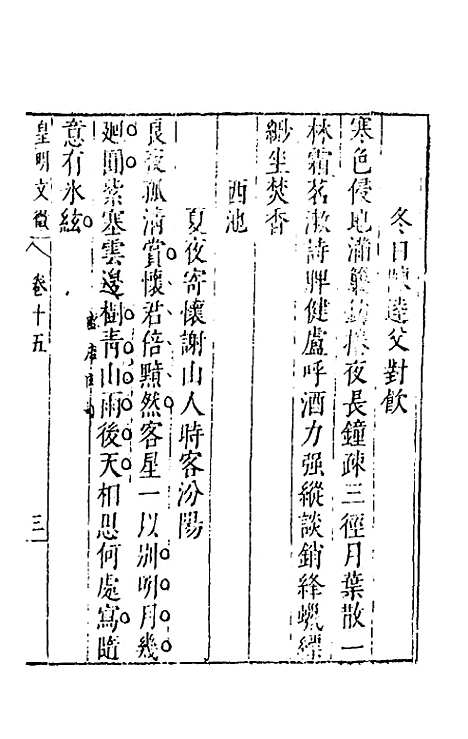 冬日陳達父對飲
寒色侵地滿 夜長鐘疎三徑月葉散一
林霜茗漱詩脾健盧呼酒力强縱談銷絳蠟縹
緲坐焚香
西池
夏夜寄懷謝山人時客汾陽
良夜孤淸賞懷君倍黯然客星一以別明月幾
廻圓紫塞雲邊樹靑山雨後天相思何處寫隨
意有氷絃
皇明文徵 卷十五 三